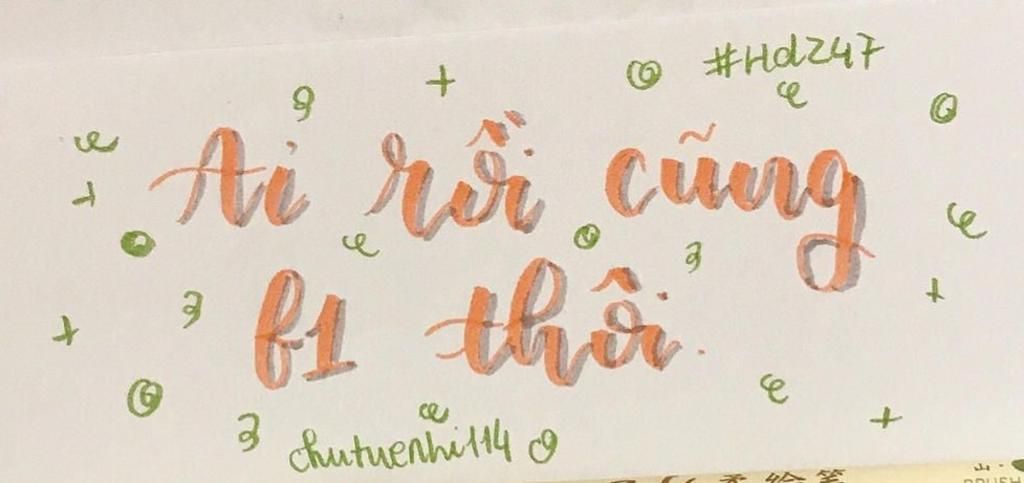 #Hdz47
Ai rồi cũng
f1 thôi.
chutuenhi114
BRUSH